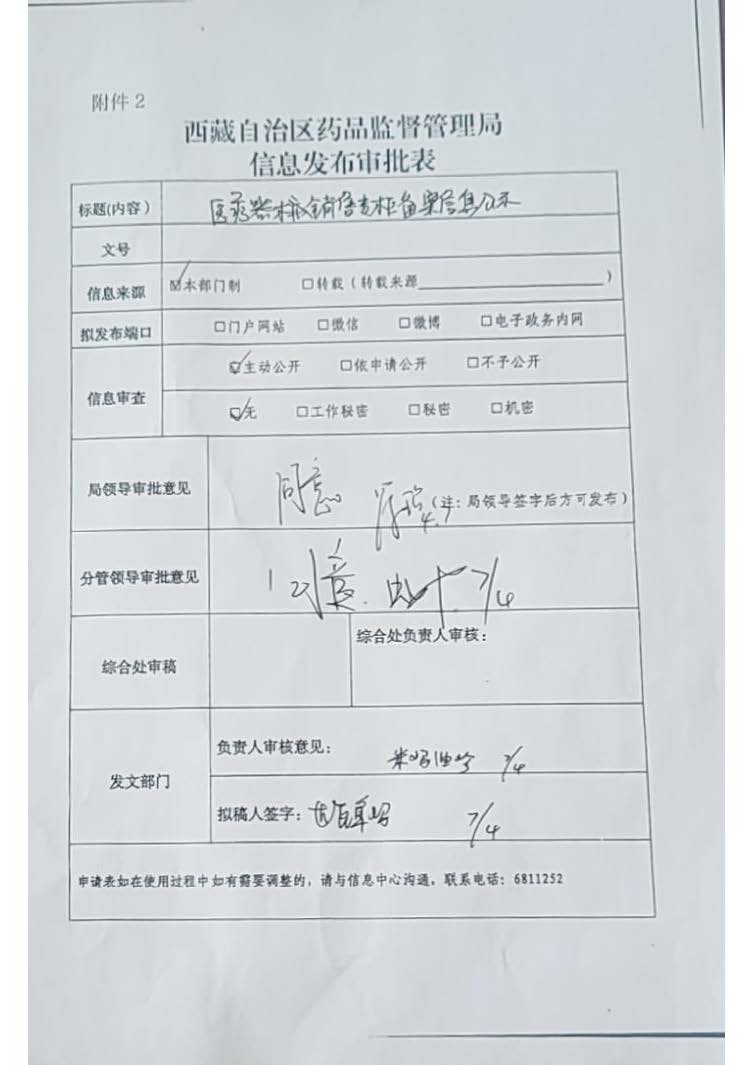 附件2
西藏自治区药品监督管理局
信息发布审批表
标题(内容) 医疗器械销售专柜备案信息公示
文号
信息来源 ☑本部门制 □转载(转载来源________________)
拟发布端口 □门户网站 □微信 □微博 □电子政务内网
信息审查 ☑主动公开 □依申请公开 □不予公开
☑无 □工作秘密 □秘密 □机密
局领导审批意见 同意 (注:局领导签字后方可发布)
分管领导审批意见 同意. 7/4
综合处审稿 综合处负责人审核:
发文部门 负责人审核意见: 7/4
拟稿人签字: 7/4
申请表如在使用过程中如有需要调整的,请与信息中心沟通,联系电话:6811252